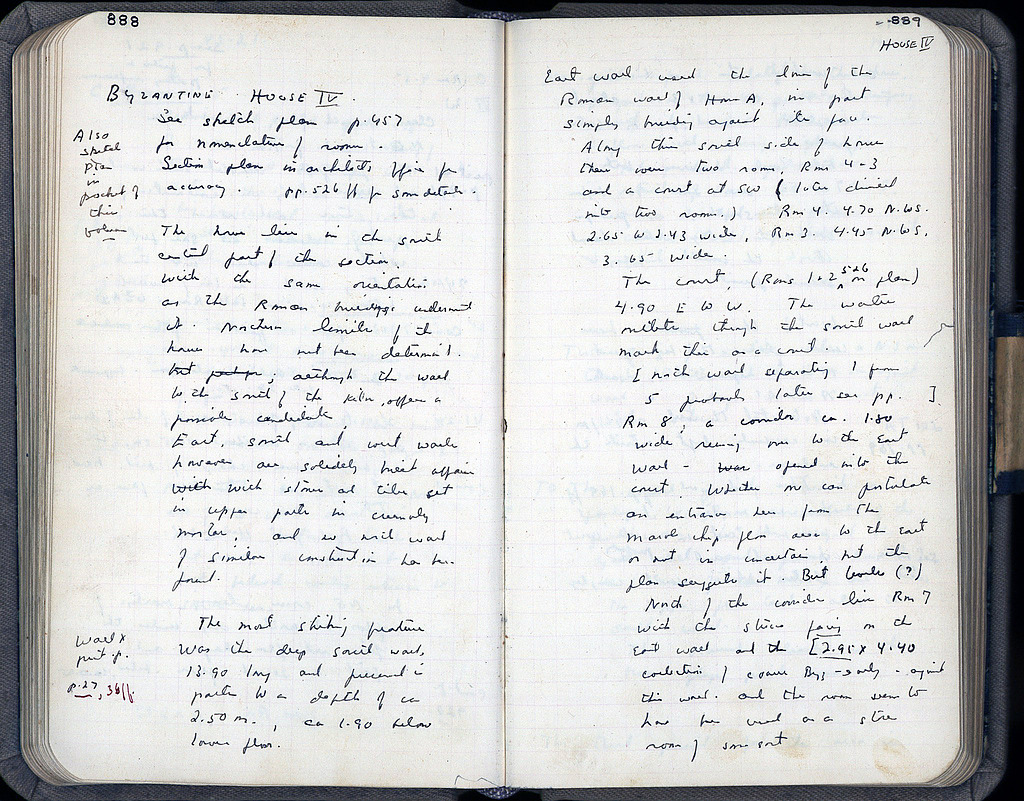 888
BYZANTINE HOUSE IV.
See sketch plan p. 457
for nomenclature of rooms.
Section plan in architects office for
accuracy. pp. 526 ff for some details.
Also
sketch
plan
in
pocket of
this
volume
The house lies in the south
central part of the section.
With the same orientation
as the Roman buildings underneath
it. Northern limits of the
house have not been determined.
but , although the wall
to the south of the kiln, offers a
possible candidate.
East, south and west walls
however are solidely built affairs
with with stones and tiles set
in upper parts in crumbly
mortar, and no north wall
of similar construction has been
found.
The most striking feature
was the deep south wall,
13.90 long and preserved in
parts to a depth of ca
2.50 m., ca 1.90 below
lower floor.
Wall x
p. 27, 36 ff.
889
HOUSE IV
East wall used the line of the
Roman wall of House A, in part
simply building against its face.
Along the south side of house
there were two rooms, Rms 4-3
and a court at SW (later divided
into two rooms.) Rm 4. 4.70 N.WS.
2.65 W 3.43 wide, Rm 3. 4.45 N.WS.
3.65 wide
The court (Rms 1+2 526 on plan)
4.90 E W W. The water
outlets through the south wall
mark this as a court
[north wall separating 1 from
5 probably later see pp. ].
Rm 8, a corridor ca. 1.80
wide running over to the East
wall - was opened into the
court. Whether we can postulate
an entrance here from the
marble chip floor area to the East
or not is uncertain, but the
plan suggests it. But levels (?)
North of the corridor lies Rm 7
with the stucco facing on the
East wall and the [2.95 x 4.40
collection of coarse Byz - early - against
this wall. and the room seems to
have been used as a store
room of some sort